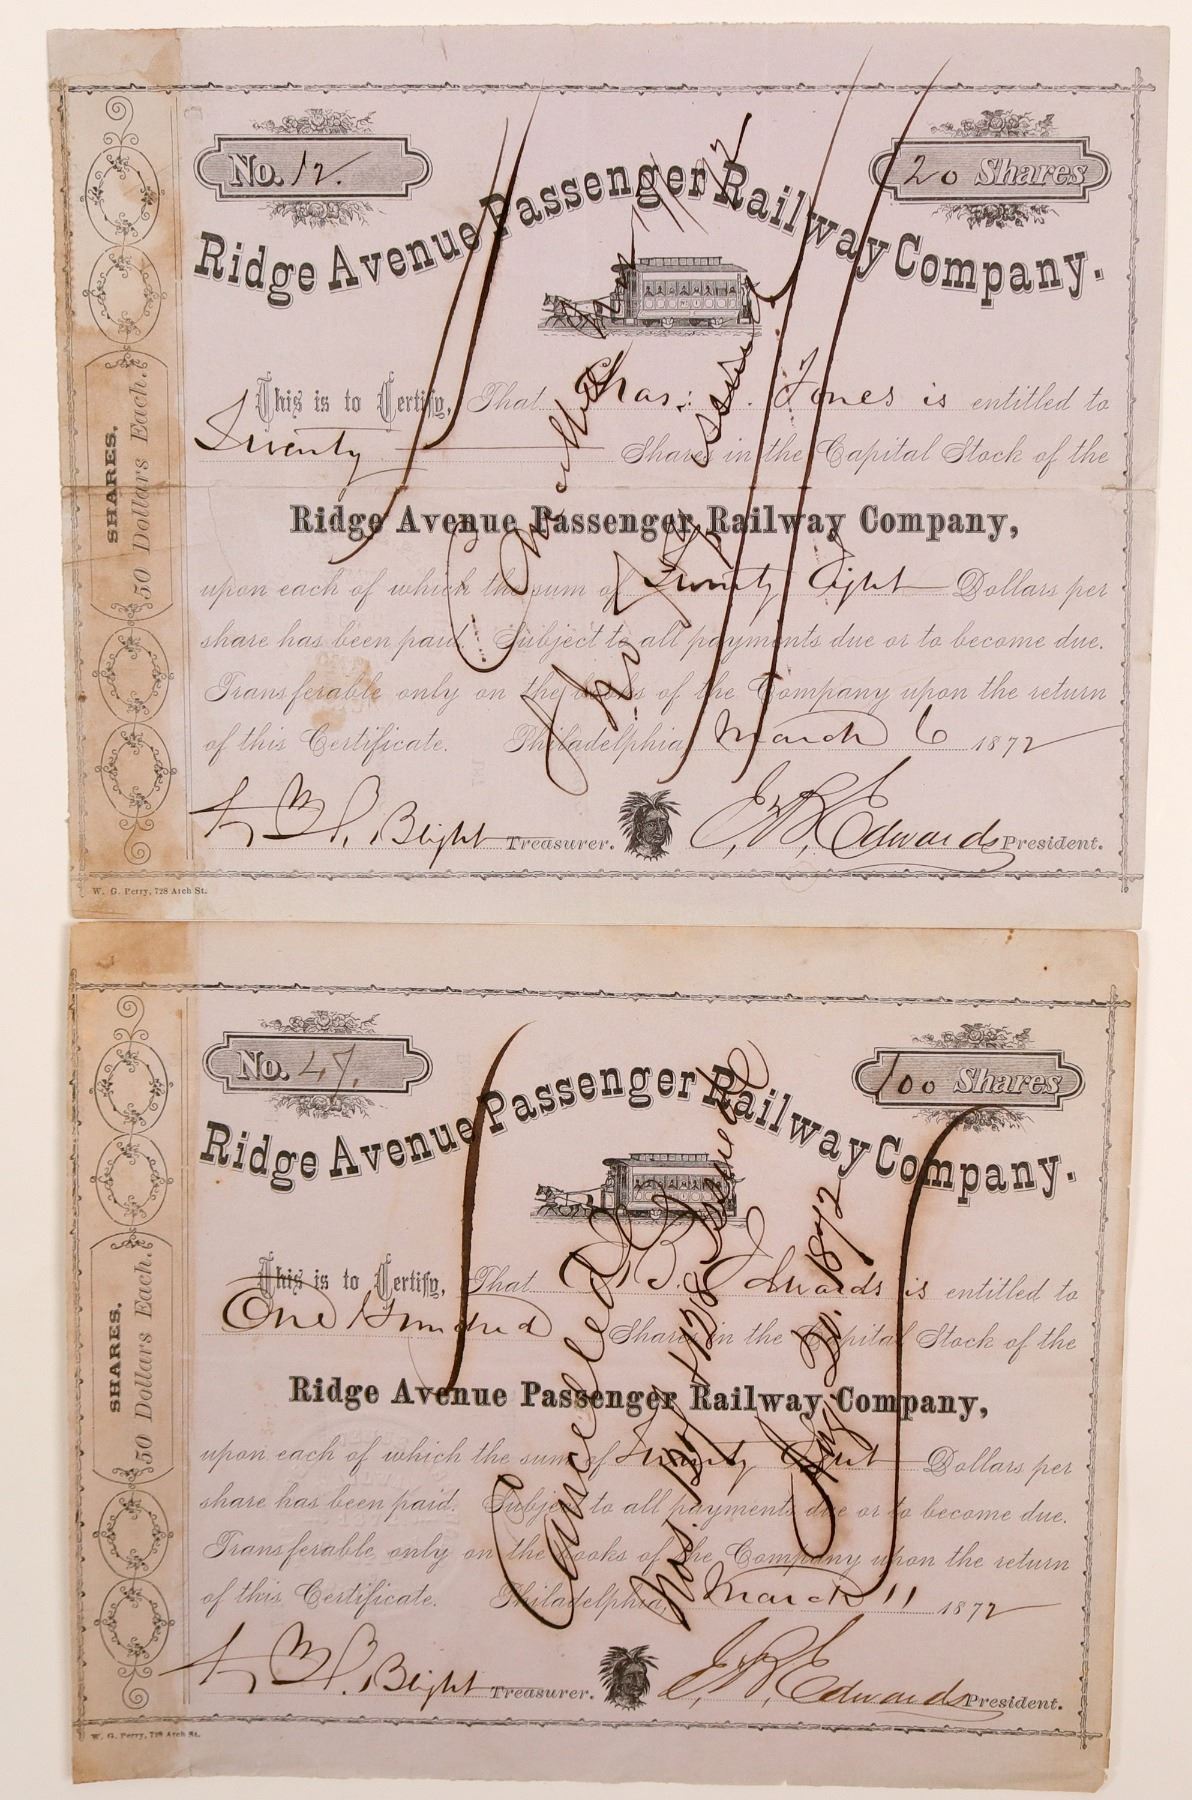 No. 12.
20 Shares
Ridge Avenue Passenger Railway Company.
This is to Certify, That Chas: Jones is entitled to
Twenty Shares in the Capital Stock of the
Ridge Avenue Passenger Railway Company,
upon each of which the sum of Twenty Eight Dollars per
share has been paid. Subject to all payments due or to become due.
Transferable only on the books of the Company upon the return
of this Certificate. Philadelphia, March 6 1872
Blight Treasurer. Edwards President.
SHARES.
50 Dollars Each.
W. G. Perry, 728 Arch St.
No. 47.
100 Shares
Ridge Avenue Passenger Railway Company.
This is to Certify, That Edwards is entitled to
One Hundred Shares in the Capital Stock of the
Ridge Avenue Passenger Railway Company,
upon each of which the sum of Twenty Eight Dollars per
share has been paid. Subject to all payments due or to become due.
Transferable only on the books of the Company upon the return
of this Certificate. Philadelphia, March 11 1872
Blight Treasurer. Edwards President.
Cancelled
Nos. 127 & 128 Issued
Aug. 20. 1872
SHARES.
50 Dollars Each.
W. G. Perry, 728 Arch St.